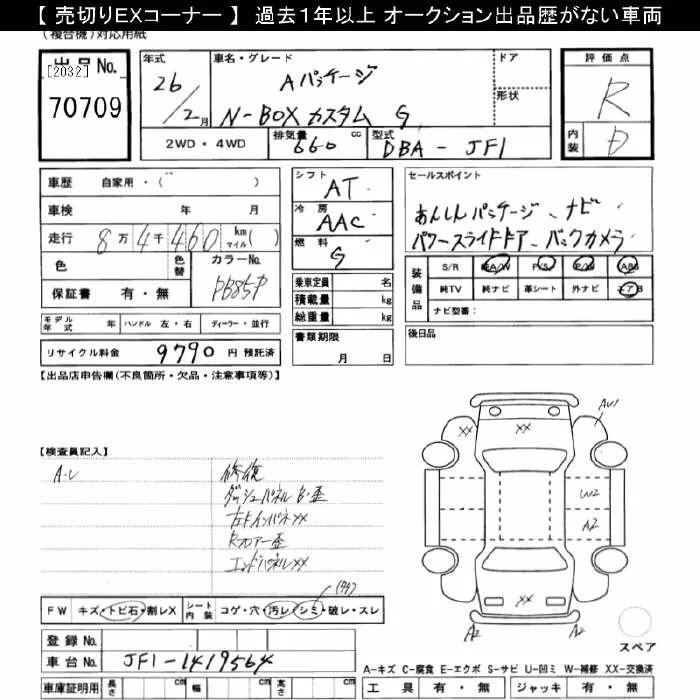 【 売切りEXコーナー 】 過去1年以上 オークション出品歴がない車両
(複合機)対応用紙
出品No.
[2032]
70709
年式
26/2月
車名・グレード
Aパッケージ
N-BOXカスタム G
ドア
形状
評価点
R
内装
D
2WD・4WD
排気量
660 cc
型式
DBA-JF1
車歴 自家用・( )
車検 年 月
走行 8万4千460 km マイル( )
色
色替
カラーNo.
PB85P
保証書 有・無
シフト
AT
冷房
AAC
燃料
G
セールスポイント
あんしんパッケージ、ナビ
パワースライドドア、バックカメラ
装備品
S/R 純A/W P/S P/W ABS
純TV 純ナビ 革シート 外ナビ エアB
ナビ型番:
乗車定員 名
積載量 kg
総重量 kg
モデル年式 年 ハンドル 左・右 ディーラー・並行
リサイクル料金 9790 円 預託済
書類期限
月 日
後日品
【出品店申告欄(不良箇所・欠品・注意事項等)】
【検査員記入】
A-U
修復
ダッシュパネル B・歪
左ドインパネXX
Rフロアー歪
エンドパネルXX
XX
XX
AU1
W2
A2
XX
A2
A2
スペア
FW キズ・トビ石・割レX
シート内装 コゲ・穴・汚レ・シミ・破レ・スレ
登録No.
車台No. JF1-1419564
車庫証明用 長さ cm 幅 cm 高さ cm
A-キズ C-腐食 E-エクボ S-サビ U-凹ミ W-補修 XX-交換済
工具 有・無 ジャッキ 有・無